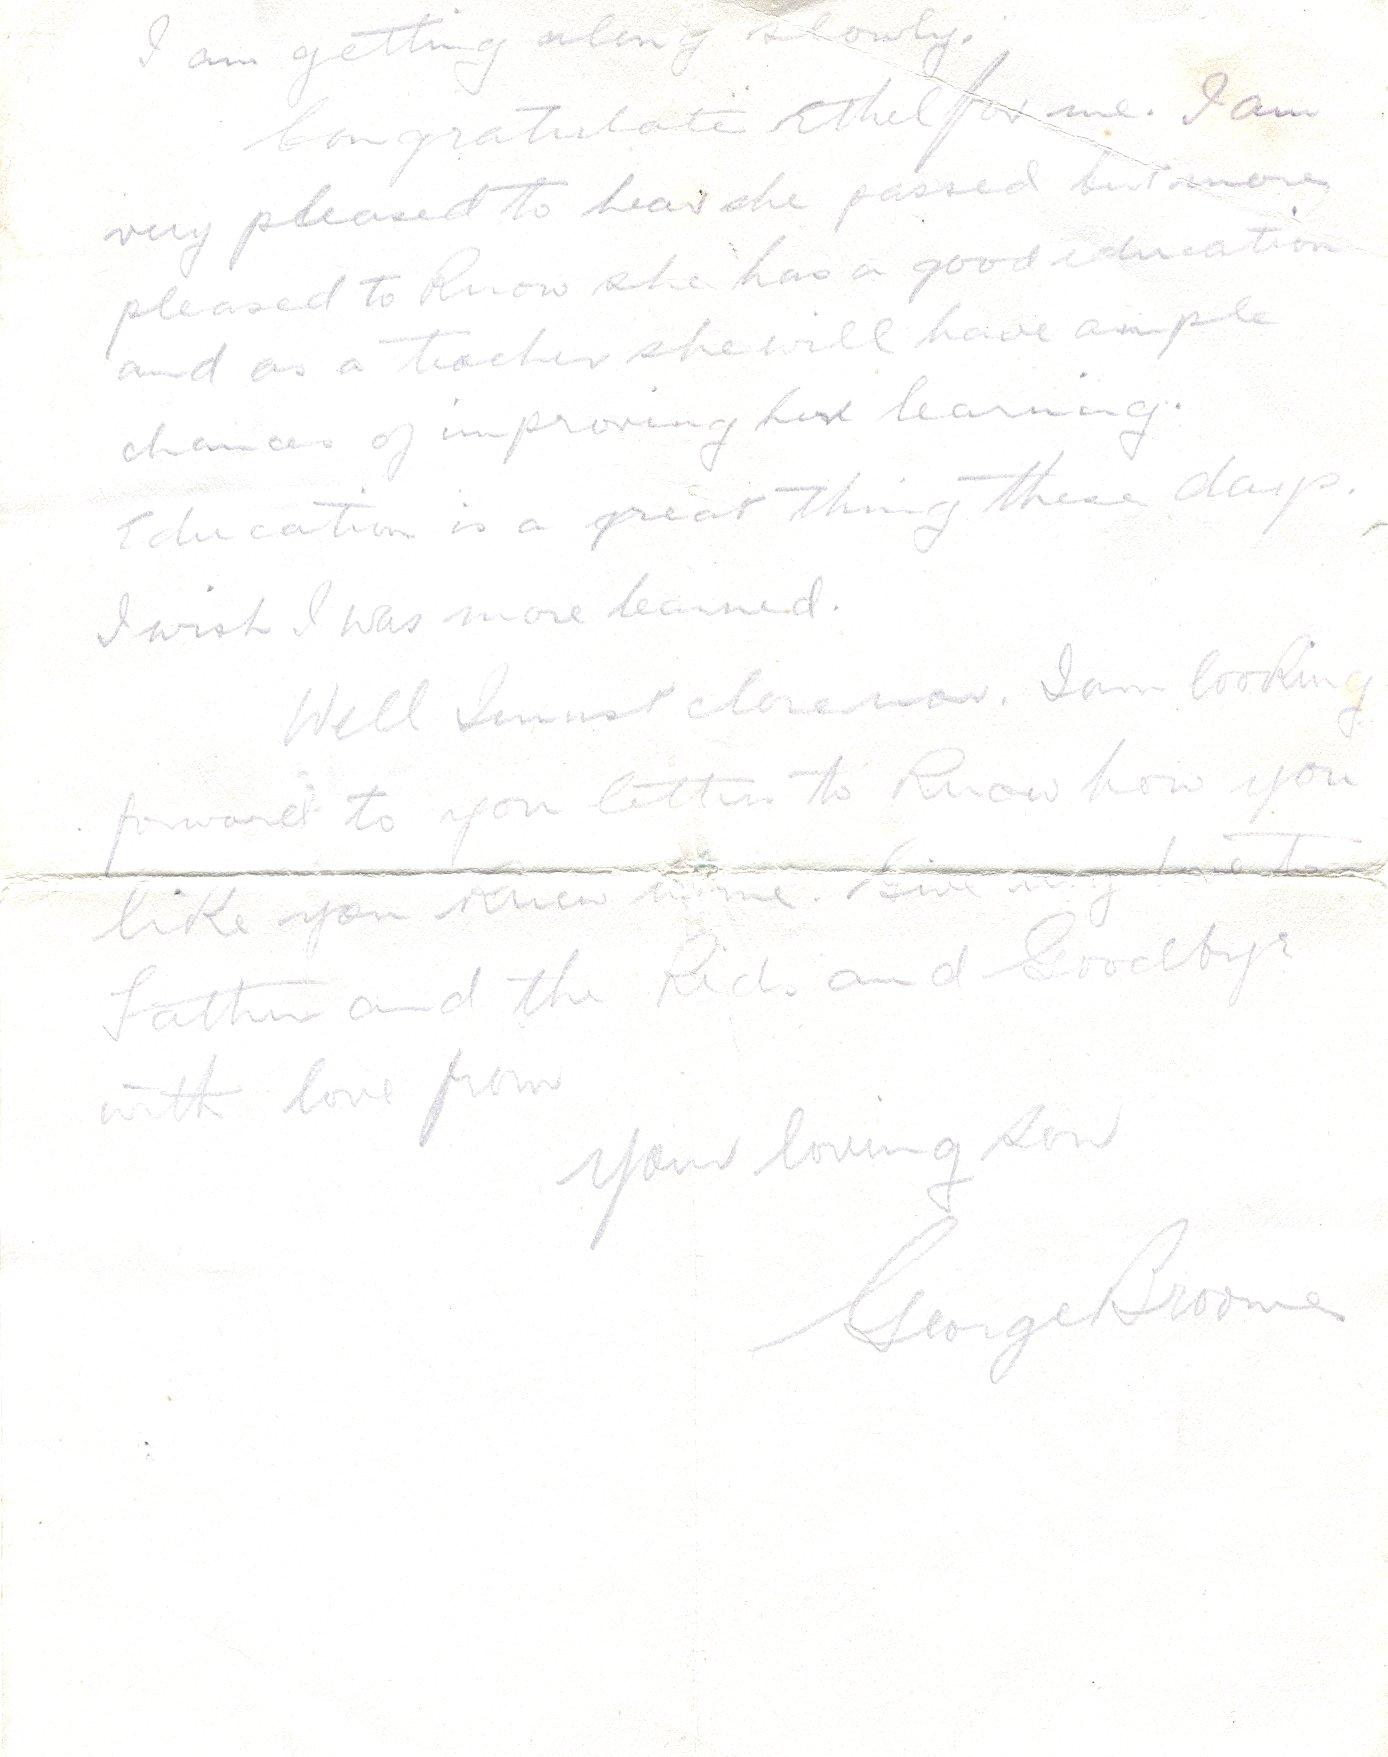 I am getting along slowly.
Congratulate Ethel for me. I am
very pleased to hear she passed but more
pleased to know she has a good education
and as a teacher she will have ample
chances of improving her learning.
Education is a great thing these days.
I wish I was more learned.
Well I must close now. I am looking
forward to you letter to know how you
like you new home. Give my love to
Father and the Kids and Goodbye
with love from
Your loving son
George Broomes